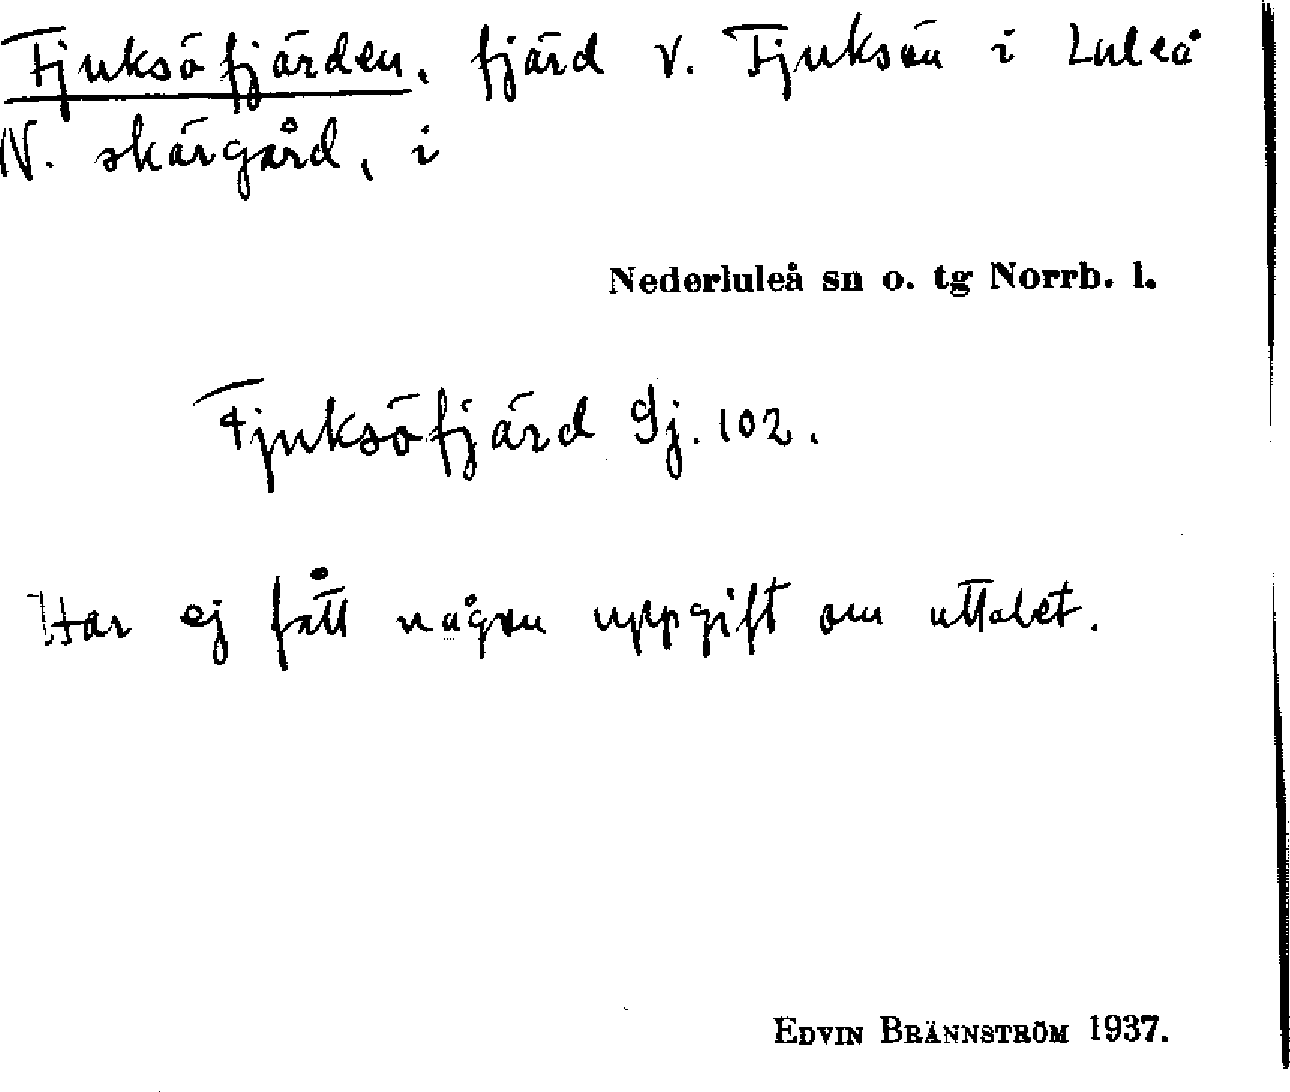 Fjuksöfjärden, fjärd v. Fjuksön i Luleå
N. skärgård, i
Nederluleå sn o. tg Norrb. l.
Fjuksöfjärd Sj. 102.
Har ej fått någon uppgift om uttalet.
EDVIN BRÄNNSTRÖM 1937.